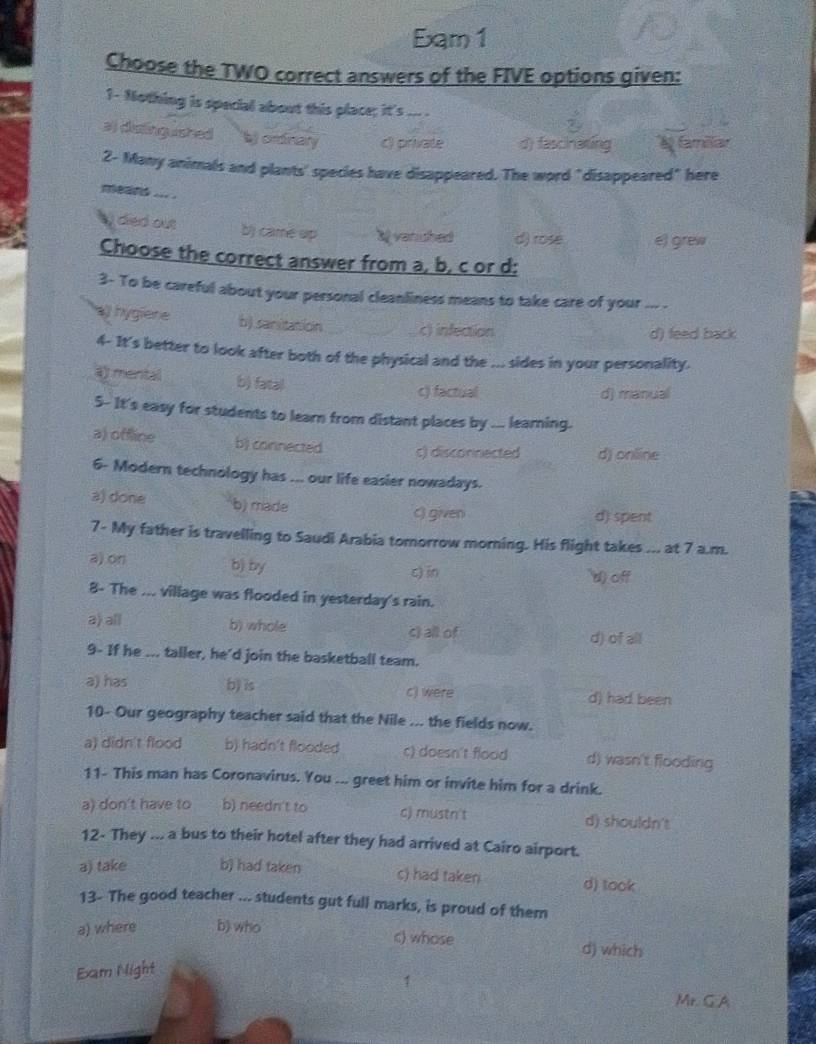 Exam 1
Choose the TWO correct answers of the FIVE options given:
1- Nothing is special about this place; it's ... .
a) distinguished b) ordinary c) private d) fascinating e) familiar
2- Many animals and plants' species have disappeared. The word "disappeared" here
means ... .
a) died out b) came up c) vanished d) rose e) grew
Choose the correct answer from a, b, c or d:
3- To be careful about your personal cleanliness means to take care of your ... .
a) hygiene b) sanitation c) infection d) feed back
4- It's better to look after both of the physical and the ... sides in your personality.
a) mental b) fatal c) factual d) manual
5- It's easy for students to learn from distant places by ... learning.
a) offline b) connected c) disconnected d) online
6- Modern technology has ... our life easier nowadays.
a) done b) made c) given d) spent
7- My father is travelling to Saudi Arabia tomorrow morning. His flight takes ... at 7 a.m.
a) on b) by c) in d) off
8- The ... village was flooded in yesterday's rain.
a) all b) whole c) all of d) of all
9- If he ... taller, he'd join the basketball team.
a) has b) is c) were d) had been
10- Our geography teacher said that the Nile ... the fields now.
a) didn't flood b) hadn't flooded c) doesn't flood d) wasn't flooding
11- This man has Coronavirus. You ... greet him or invite him for a drink.
a) don't have to b) needn't to c) mustn't d) shouldn't
12- They ... a bus to their hotel after they had arrived at Cairo airport.
a) take b) had taken c) had taken d) took
13- The good teacher ... students gut full marks, is proud of them
a) where b) who c) whose d) which
Exam Night 1 Mr. G.A